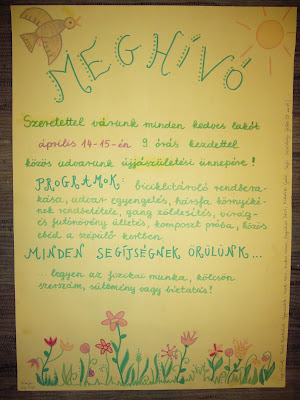 MEGHÍVÓ
Szeretettel várunk minden kedves lakót
április 14-15-én 9 órás kezdettel
közös udvarunk újjászületési ünnepére!
PROGRAMOK: biciklitároló rendbera-
kása, udvar egyengetés, hársfa környéki-
nek rendbetétele, gang zöldesítés, virág-
és futónövény ültetés, komposzt próba, közös
ebéd a szépülő kertben
MINDEN SEGÍTSÉGNEK ÖRÜLÜNK...
...legyen az fizikai munka, kölcsön
szerszám, sütemény vagy biztatás!